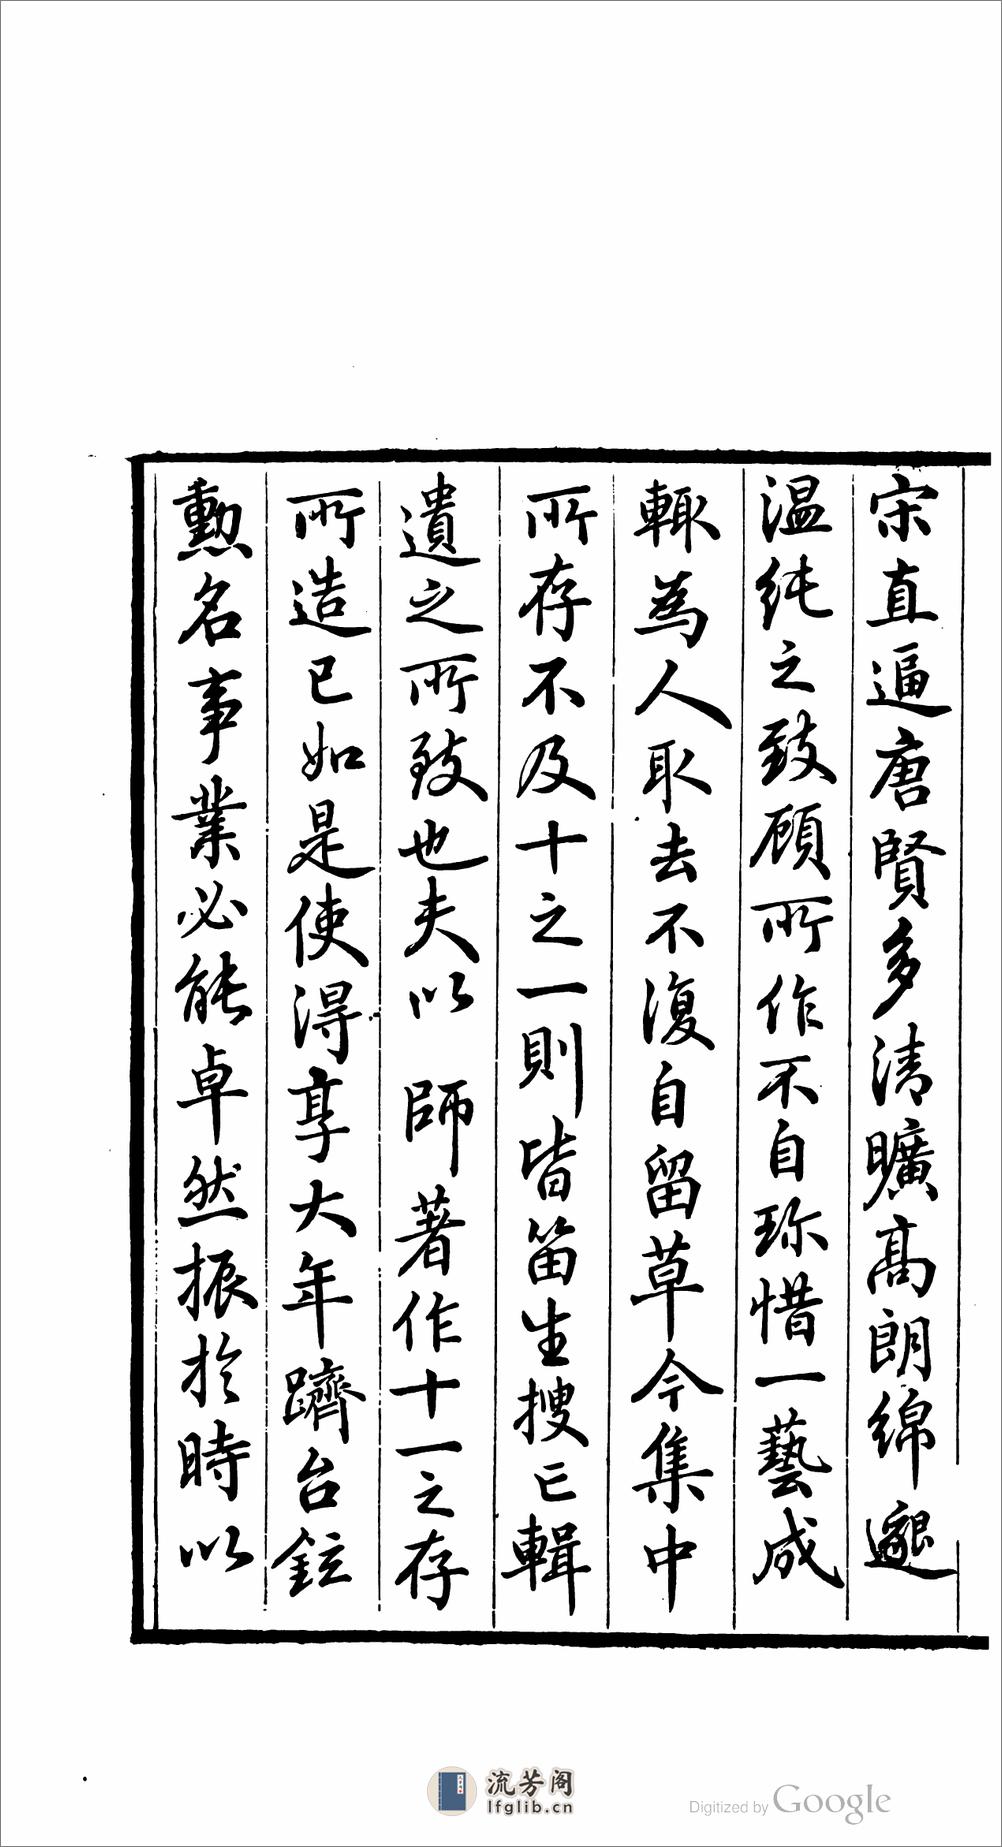 宋直逼唐賢多清曠高朗綿邈
温純之致顧所作不自珎惜一藝成
輙為人取去不復自留草今集中
所存不及十之一則皆笛生搜亡輯
遺之所致也夫以 師著作十一之存
所造已如是使得享大年躋台鉉
勲名事業必能卓然振於時以
流芳阁
lfglib.cn
Digitized by Google